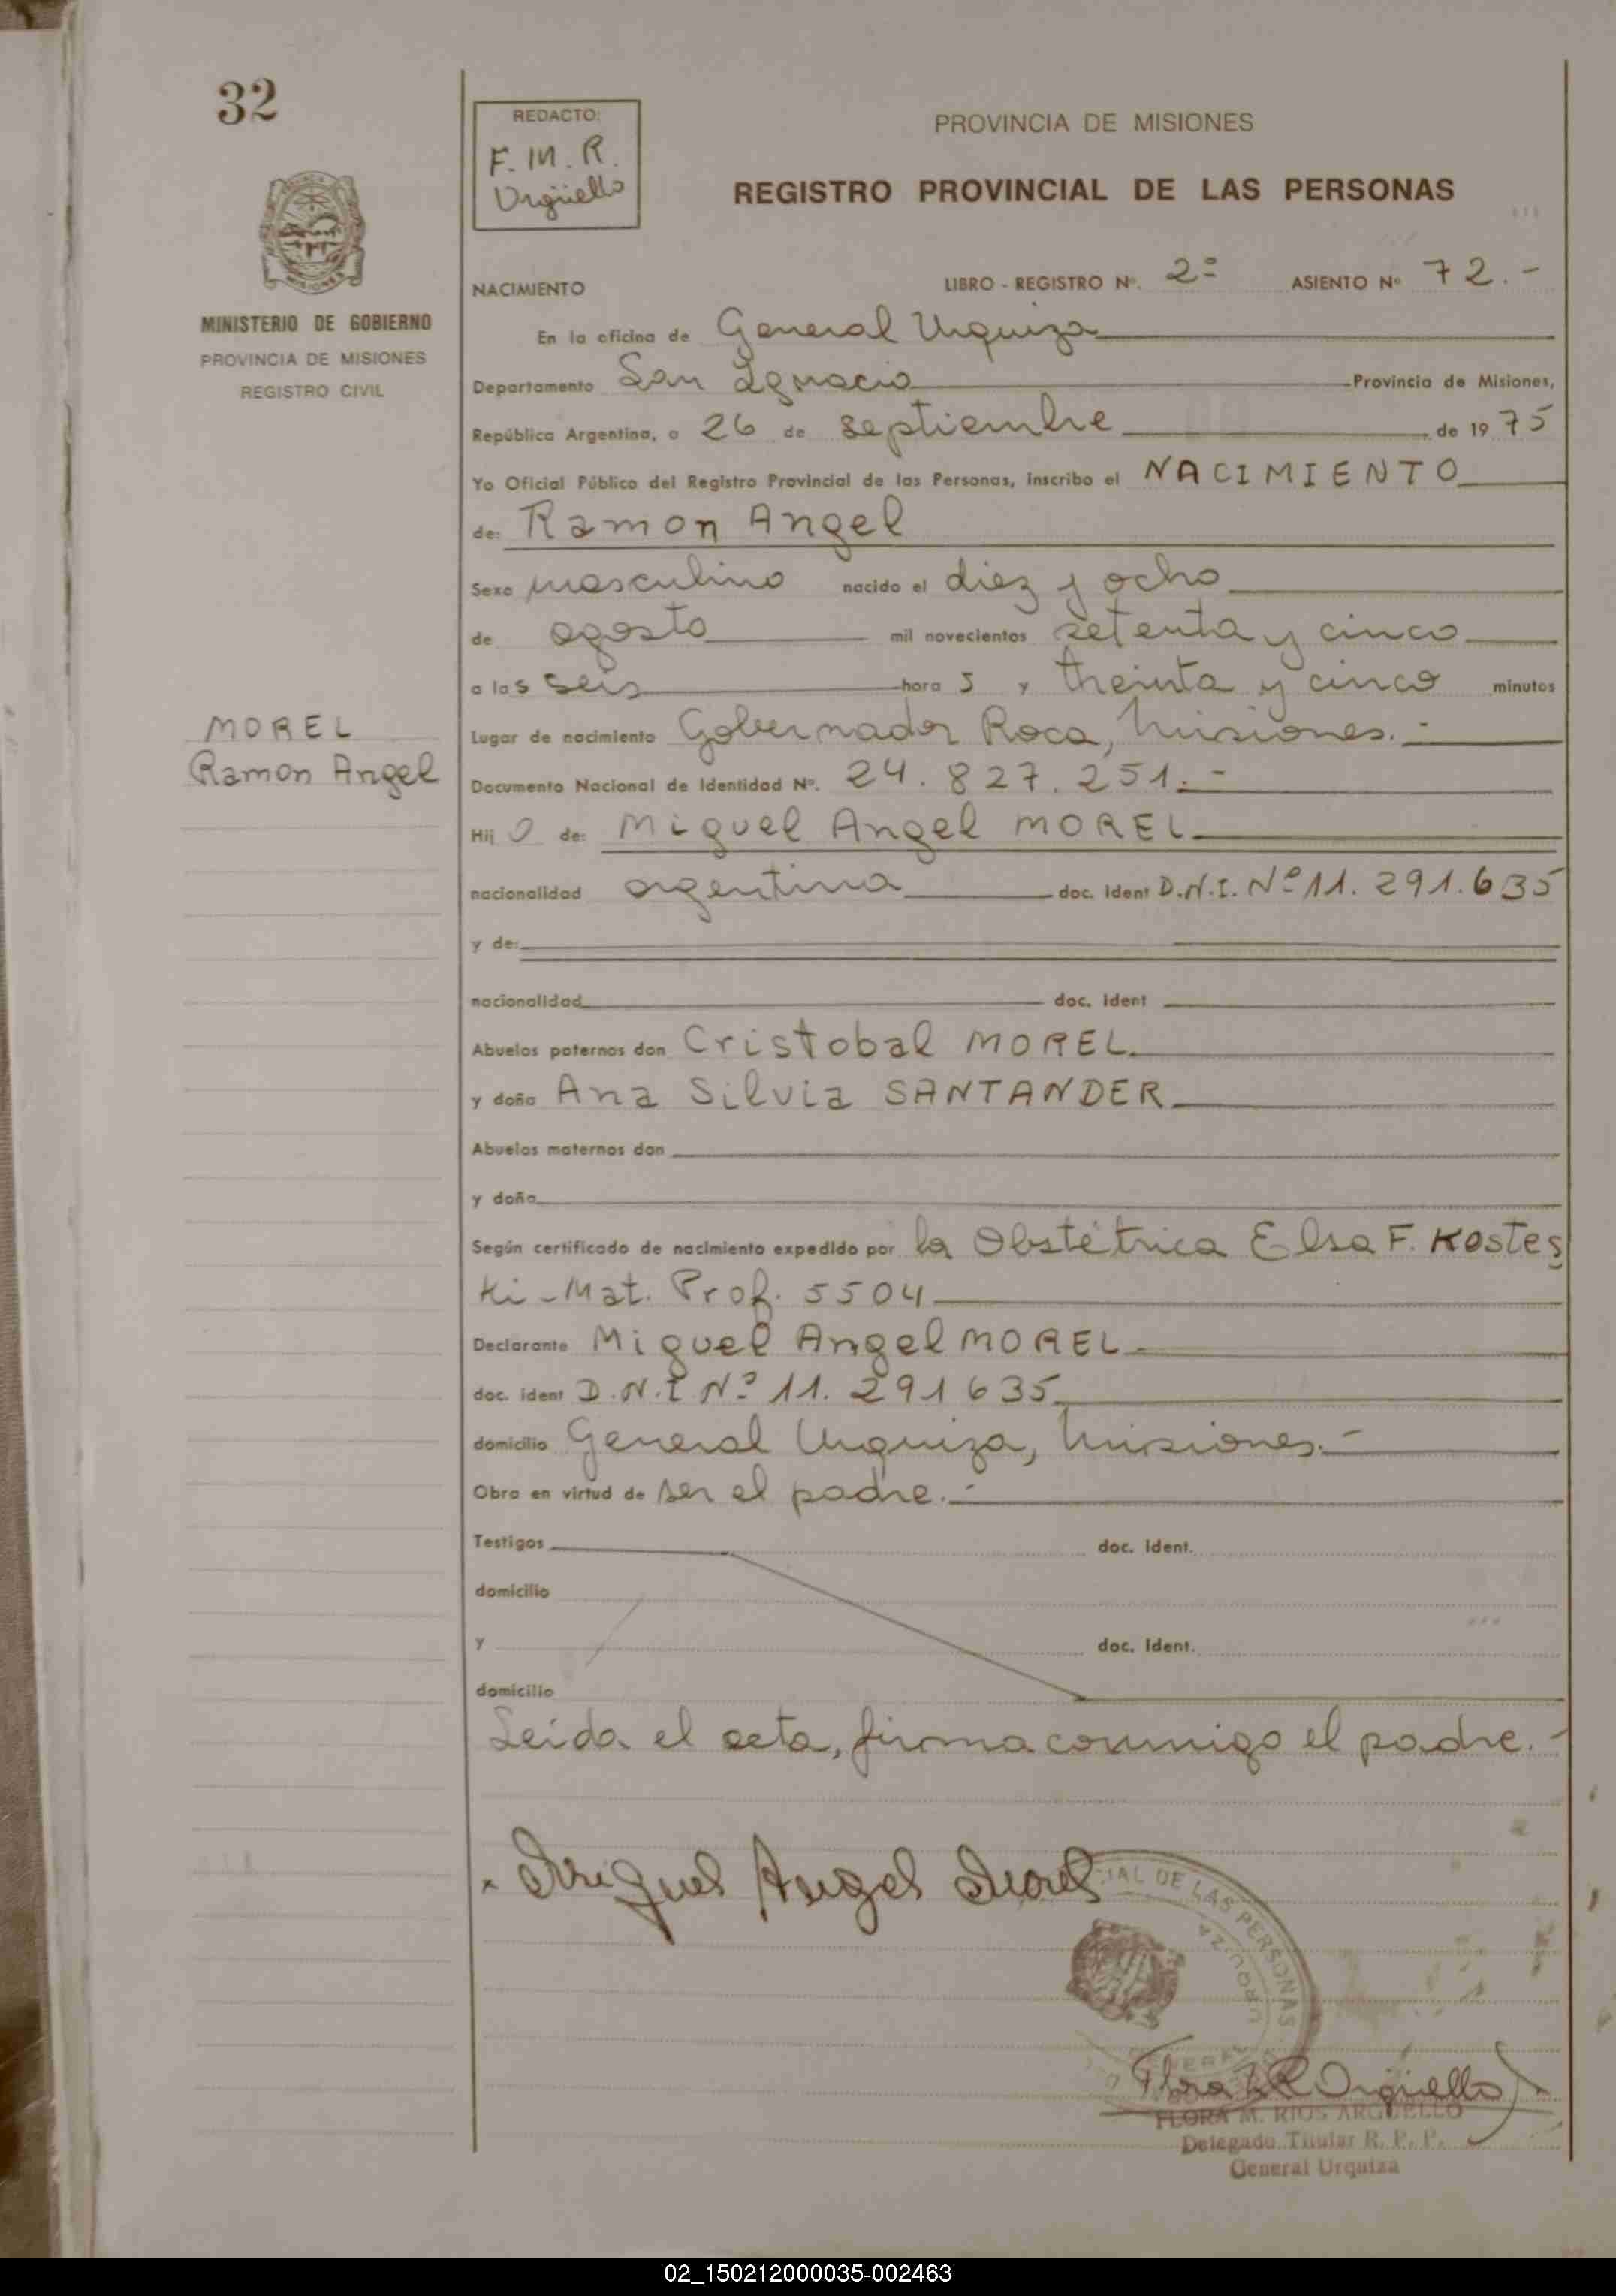 32
REDACTO:
F. M. R.
Urgüello
PROVINCIA DE MISIONES
REGISTRO PROVINCIAL DE LAS PERSONAS
MINISTERIO DE GOBIERNO
PROVINCIA DE MISIONES
REGISTRO CIVIL
NACIMIENTO LIBRO - REGISTRO Nº. 2º ASIENTO Nº 72.-
En la oficina de General Urquiza
Departamento San Ignacio Provincia de Misiones,
República Argentina, a 26 de septiembre de 1975
Yo Oficial Público del Registro Provincial de las Personas, inscribo el NACIMIENTO
de: Ramon Angel
Sexo masculino nacido el diez y ocho
de agosto mil novecientos setenta y cinco
a las seis horas y treinta y cinco minutos
MOREL
Ramon Angel
Lugar de nacimiento Gobernador Roca, Misiones.-
Documento Nacional de Identidad Nº. 24.827.251.-
Hijo de: Miguel Angel MOREL
nacionalidad argentina doc. Ident D.N.I. Nº 11.291.635
y de:
nacionalidad doc. Ident
Abuelos paternos don Cristobal MOREL
y doña Ana Silvia SANTANDER
Abuelos maternos don
y doña
Según certificado de nacimiento expedido por la Obstétrica Elsa F. Kostes
ki - Mat. Prof. 5504
Declarante Miguel Angel MOREL
doc. ident D.N.I Nº 11.291635
domicilio General Urquiza, Misiones.-
Obra en virtud de ser el padre.-
Testigos doc. Ident.
domicilio
y doc. Ident.
domicilio
Leída el acta, firma conmigo el padre.-
Miguel Angel Morel
CIAL DE LAS PERSONAS
URQUIZA
Flora M R Urgüello
FLORA M. RIOS ARGUELLO
Delegado Titular R. P. P.
General Urquiza
02_150212000035-002463